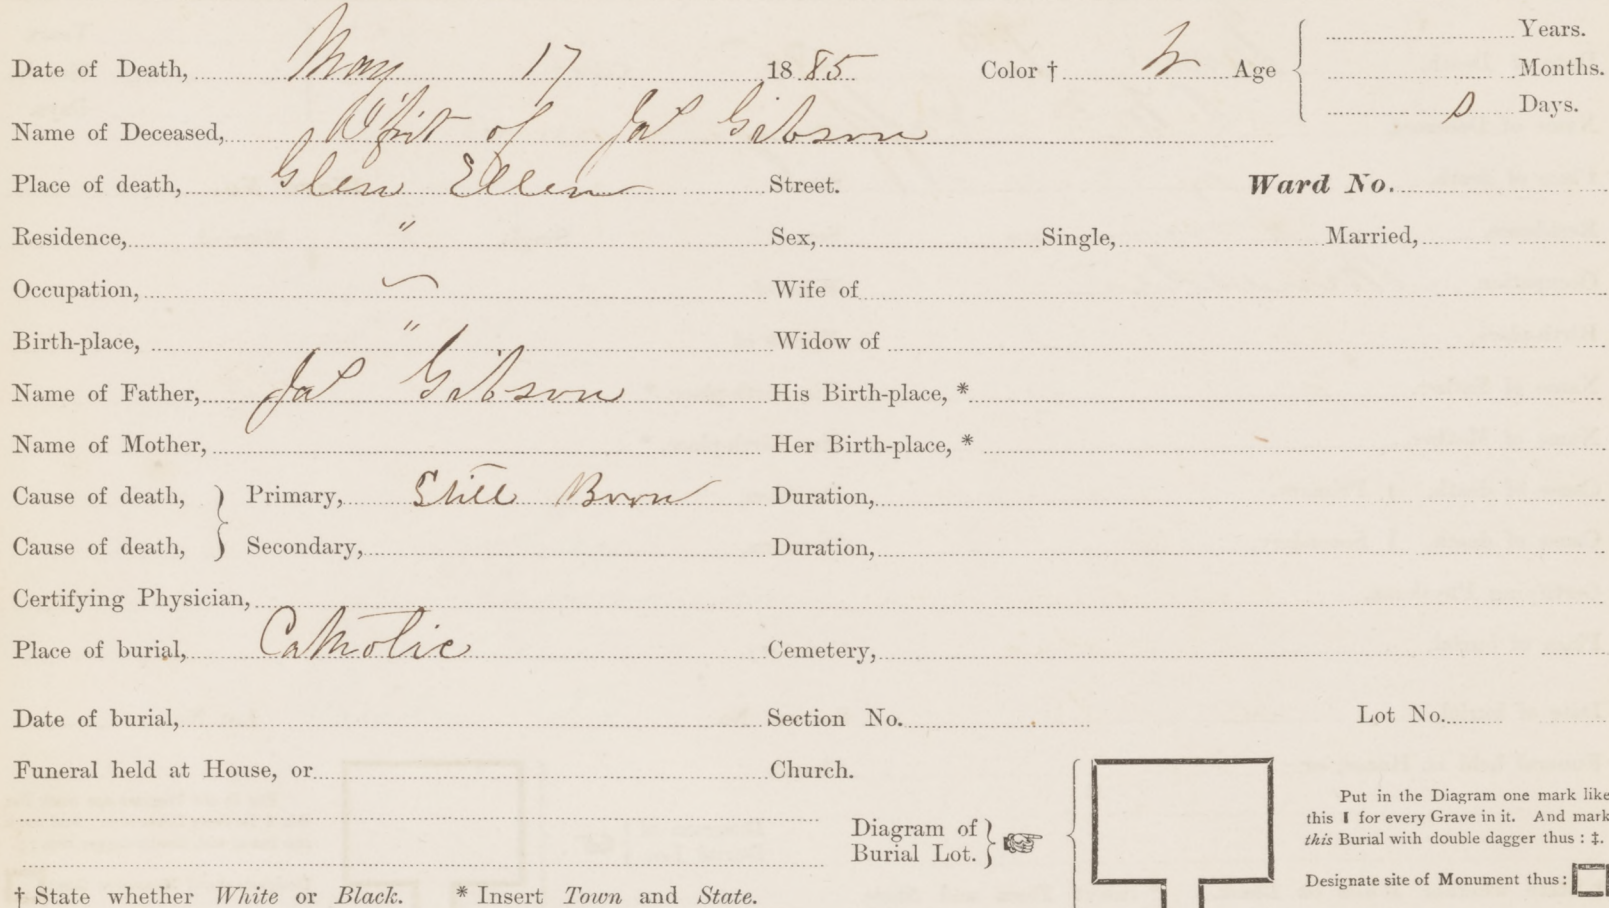 Date of Death, May 17 1885 Color † W Age Years.
Months.
0 Days.
Name of Deceased, Infnt of Jas Gibson
Place of death, Glen Ellen Street. Ward No.
Residence, " Sex, Single, Married,
Occupation, Wife of
Birth-place, " Widow of
Name of Father, Jas Gibson His Birth-place, *
Name of Mother, Her Birth-place, *
Cause of death, } Primary, Still Born Duration,
Cause of death, } Secondary, Duration,
Certifying Physician,
Place of burial, Catholic Cemetery,
Date of burial, Section No. Lot No.
Funeral held at House, or Church.
Put in the Diagram one mark like
this I for every Grave in it. And mark
this Burial with double dagger thus : ‡.
Diagram of
Burial Lot.
Designate site of Monument thus:
† State whether White or Black. * Insert Town and State.